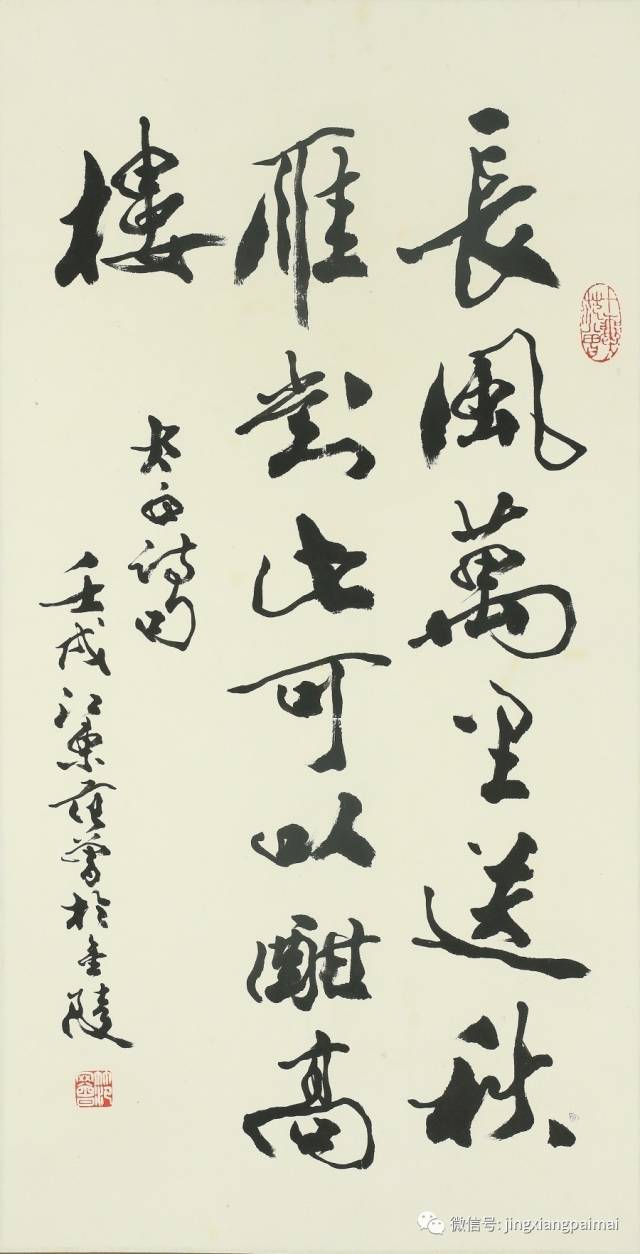 長風萬里送秋
雁對此可以酣高
樓
太白詩句
壬戌江東范曾於金陵
微信号: jingxiangpaimai